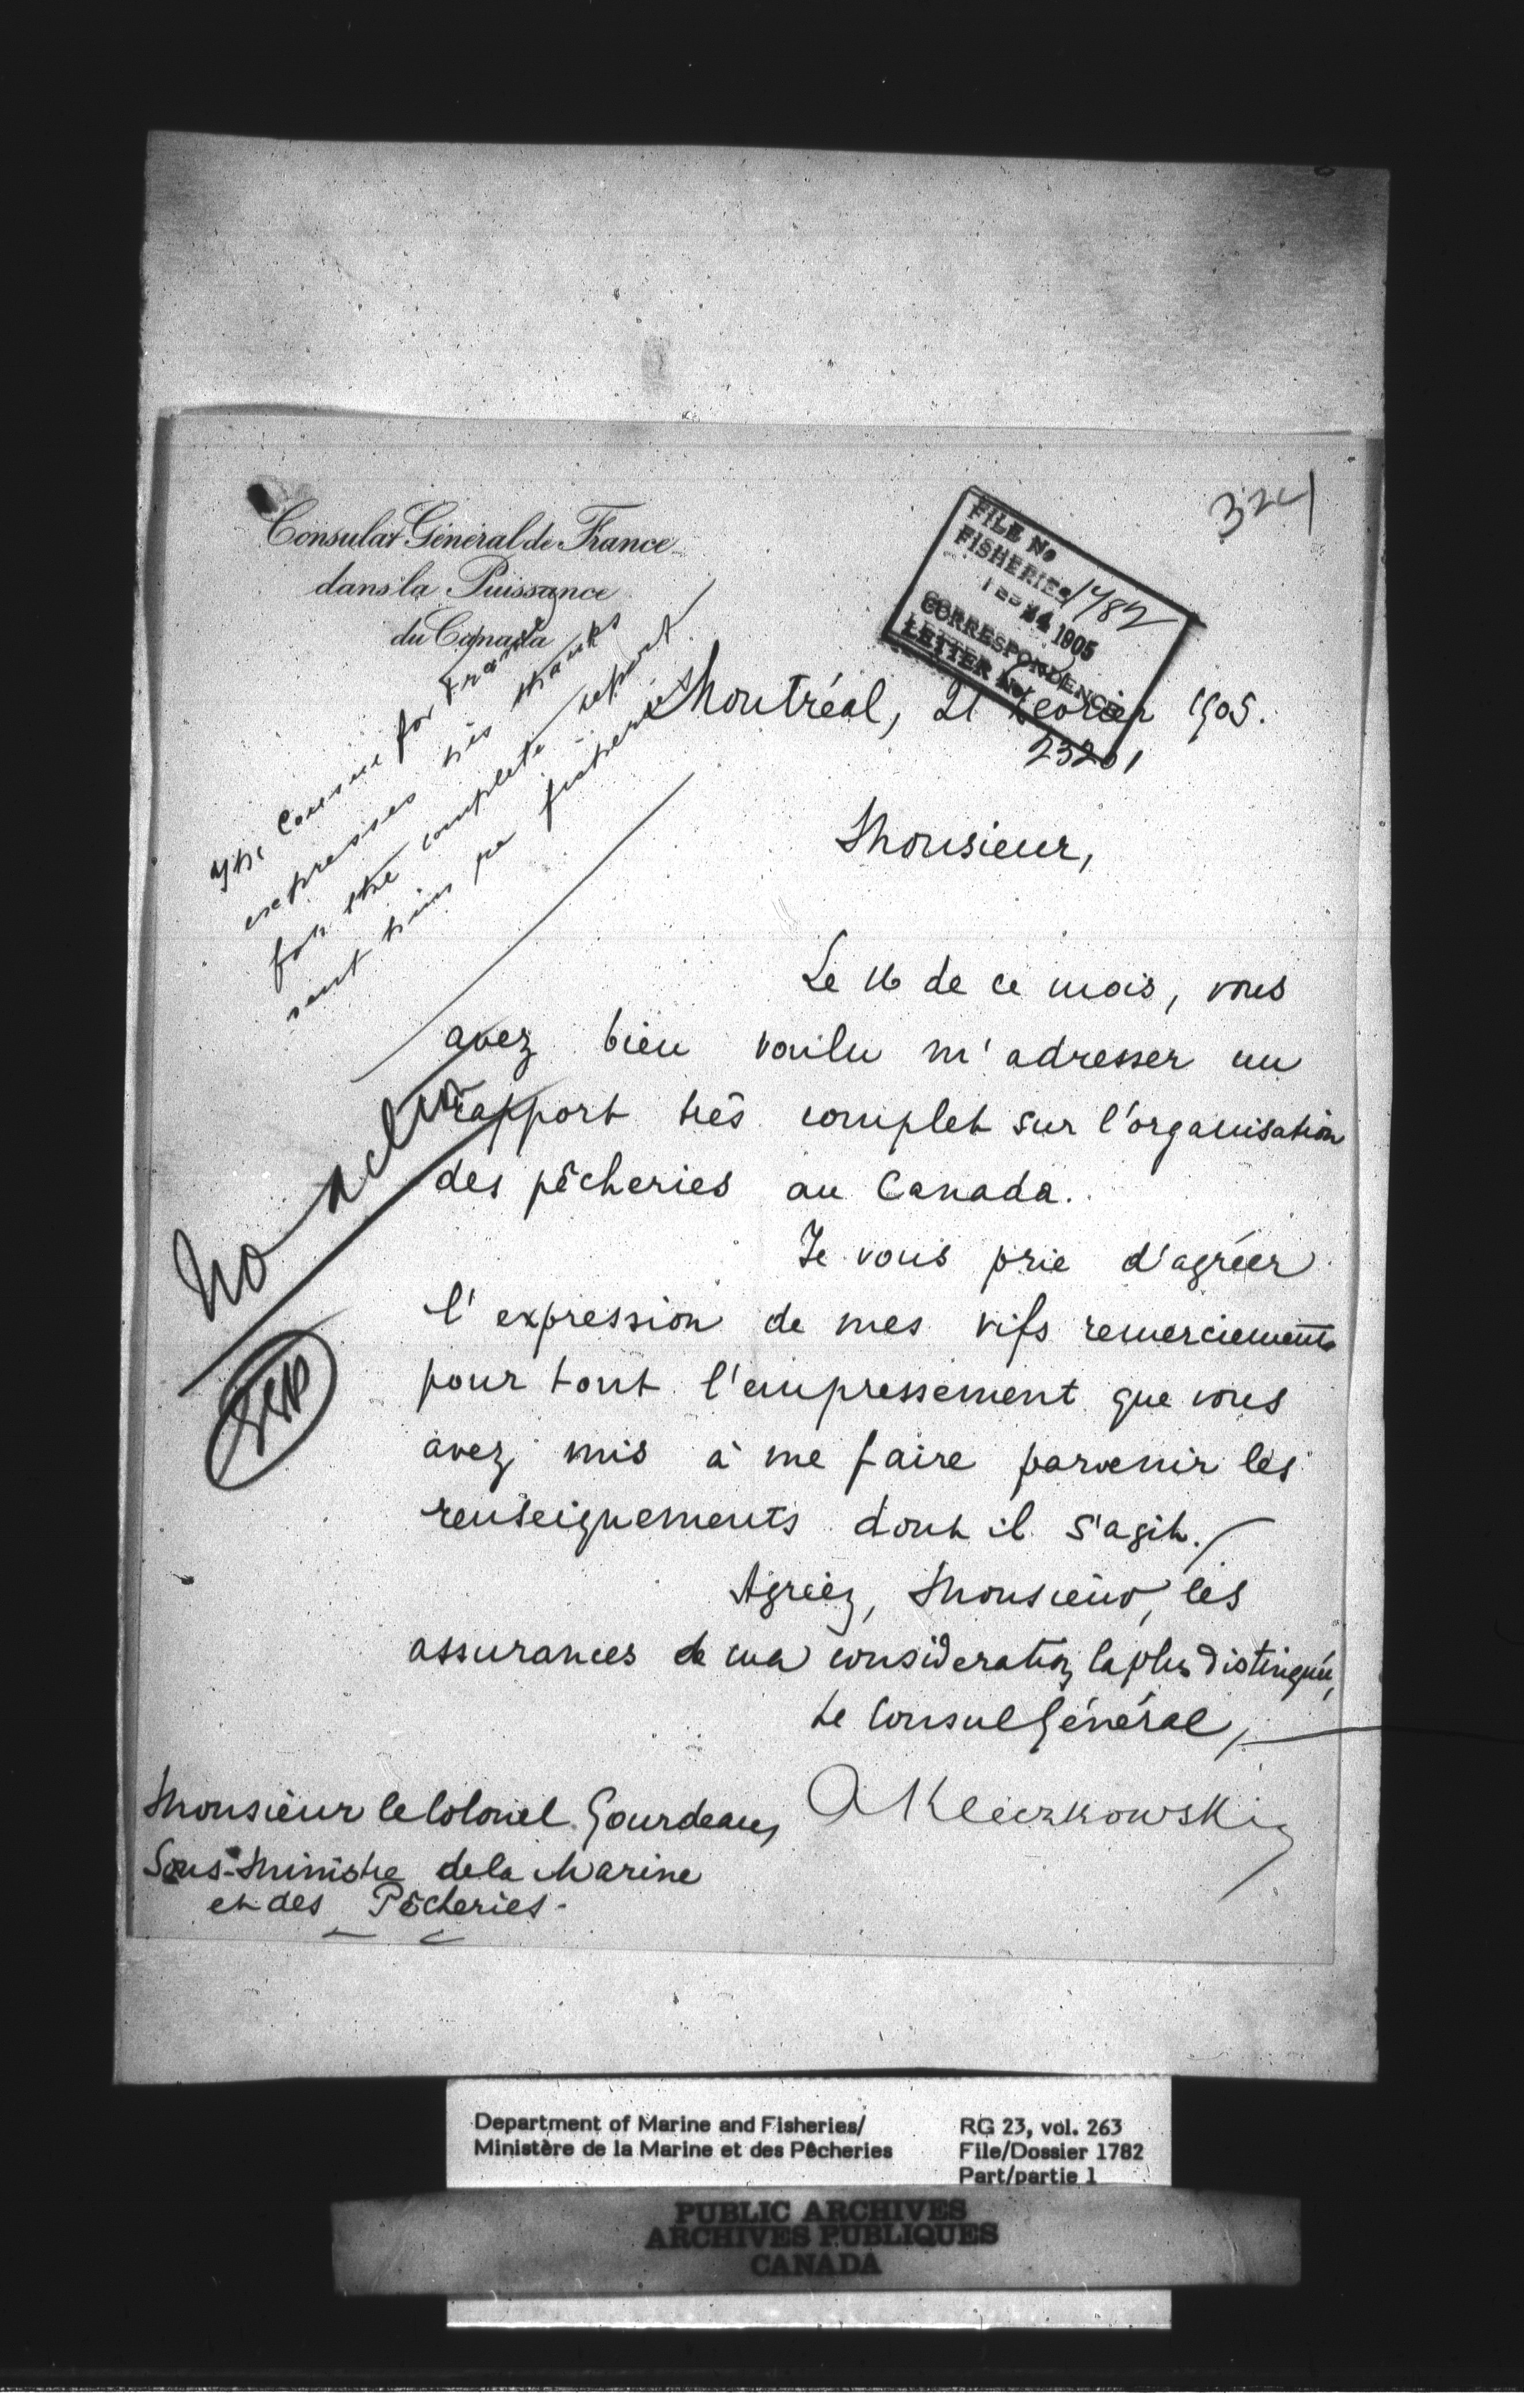 324
Consulat Général de France
dans la Puissance
du Canada
FILE No
FISHERIES 1782
FEB 24 1905
CORRESPONDENCE
LETTER No
23201
Montréal, 21 février 1905.
The Consul for France
expresses his thanks
for the complete report
sent him re fisheries
Monsieur,
Le 16 de ce mois, vous
avez bien voulu m'adresser un
rapport très complet sur l'organisation
des pêcheries au Canada.
No action
Je vous prie d'agréer
l'expression de mes vifs remerciements
pour tout l'empressement que vous
avez mis à me faire parvenir les
renseignements dont il s'agit.
Agréez, Monsieur, les
assurances de ma considération la plus distinguée,
Le Consul Général,
A Kleczkowski
Monsieur le Colonel Gourdeau,
Sous-Ministre de la Marine
et des Pêcheries.
Department of Marine and Fisheries/
Ministère de la Marine et des Pêcheries
RG 23, vol. 263
File/Dossier 1782
Part/partie 1
PUBLIC ARCHIVES
ARCHIVES PUBLIQUES
CANADA